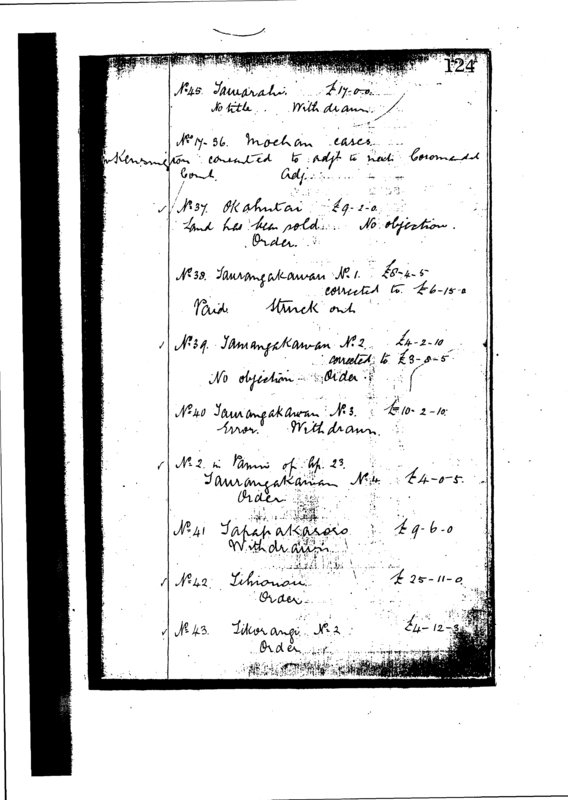 124
No 45. Tamarahi. £17-0-0
No title. Withdrawn.
No 17-36. Moehau cases
Kensington consented to adjt to next Coromandel
Court. Adj.
No 37. Okahutai £9-2-0
Land has been sold. No objection.
Order.
No 38. Taurangakawau No 1. £8-4-5
corrected to £6-15-0
Paid Struck out
No 39. Taurangakawau No 2 £4-2-10
corrected to £3-8-5
No objection Order.
No 40 Taurangakawau No 3. £10-2-10
Error. Withdrawn.
No 2. in Pannui of Ap. 23.
Taurangakawau No 4 £4-0-5
Order
No 41 Tapapakaroro £9-6-0
Withdrawn
No 42. £25-11-0
Order
No 43. Tikorangi No 2 £4-12-3
Order